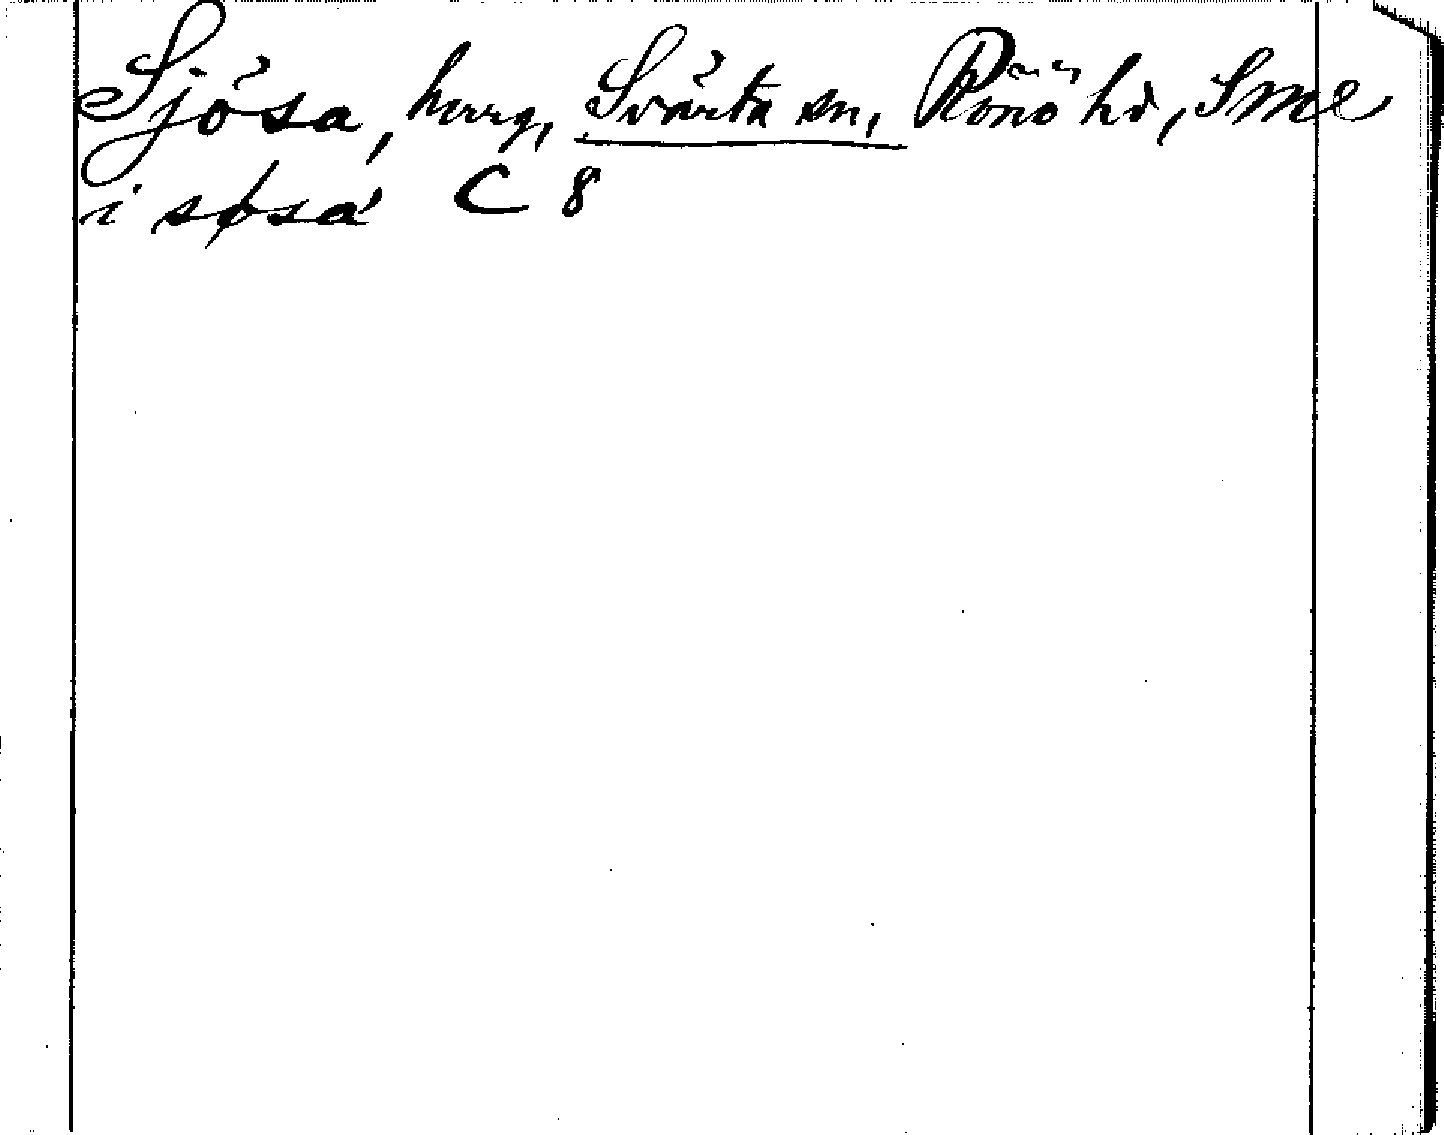 Sjösa, herrg, Svärta sn, Rönö hd, Sml
i søsa C 8